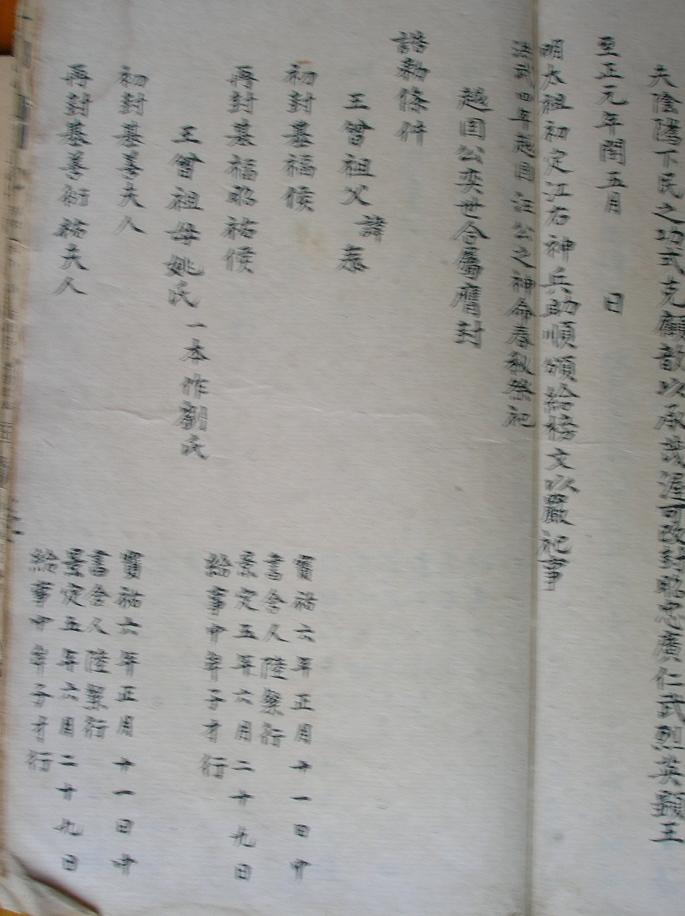 夫陰隲下民之功式克顧歆以承茂渥可改封昭忠廣仁武烈英顯王
至正元年閏五月　日
明太祖初定江右神兵助順頒給榜文以嚴祀事
洪武四年越国汪公之神命春秋祭祀
越国公奕世合屬膺封
誥勅條件
王曾祖父諱泰
初封基福侯
寶祐六年正月廿一日中
書舍人陸槃行
再封基福昭祐侯
景定五年六月二十九日
給事中牟子才行
王曾祖母姚氏一本作劉氏
初封基善夫人
寶祐六年正月廿一日中
書舍人陸槃行
再封基善衍祐夫人
景定五年六月二十九日
給事中牟子才行